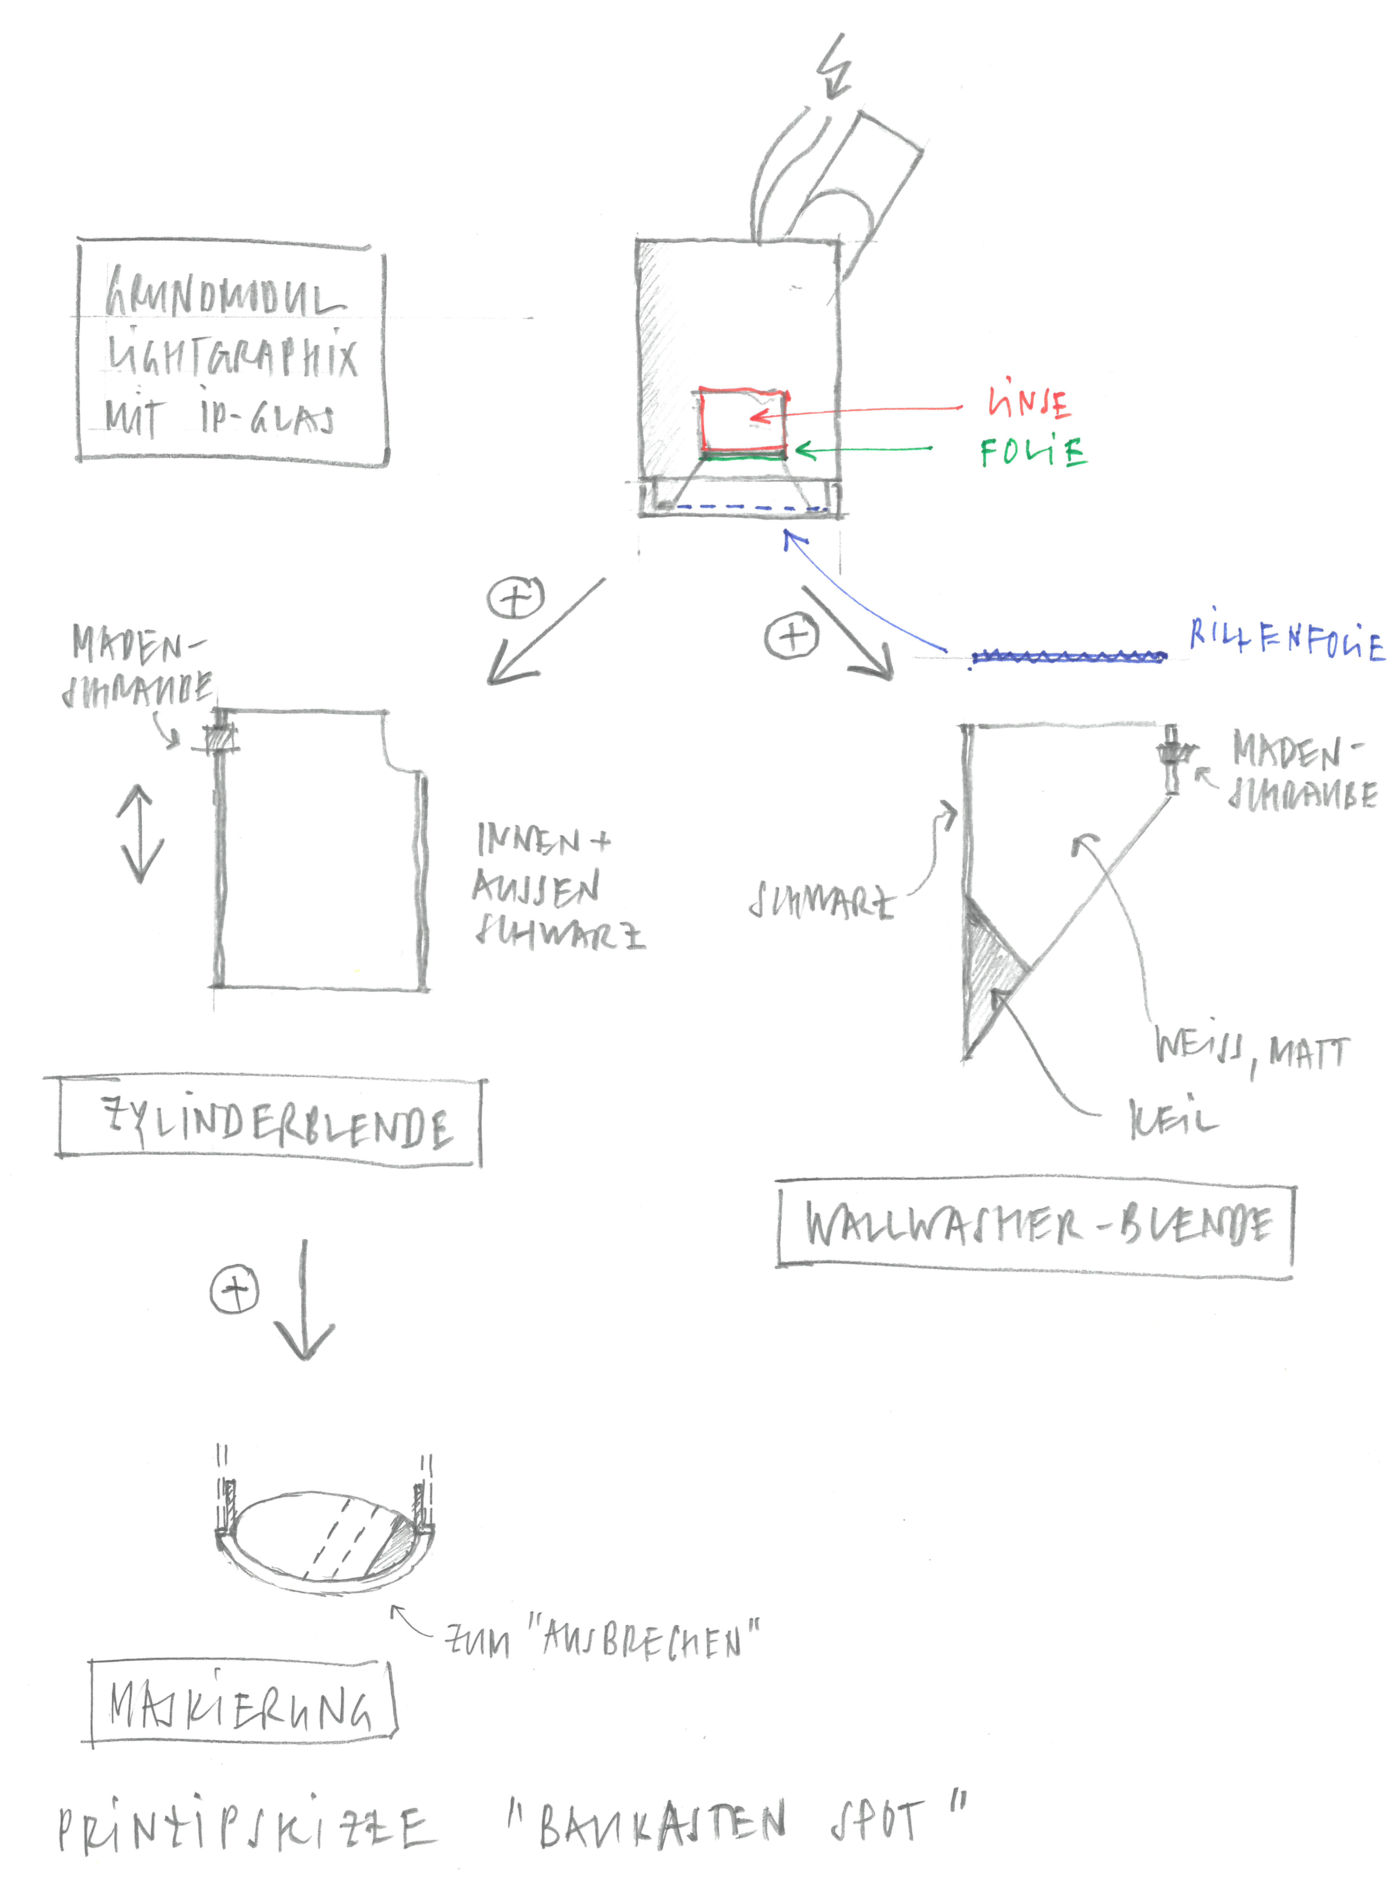 GRUNDMODUL
LIGHTGRAPHIX
MIT IP-GLAS
LINSE
FOLIE
+
+
RILLENFOLIE
MADEN-
SCHRAUBE
MADEN-
SCHRAUBE
INNEN +
AUSSEN
SCHWARZ
SCHWARZ
WEISS, MATT
KEIL
ZYLINDERBLENDE
WALLWASHER-BLENDE
+
ZUM "AUSBRECHEN"
MASKIERUNG
PRINZIPSKIZZE "BAUKASTEN SPOT"